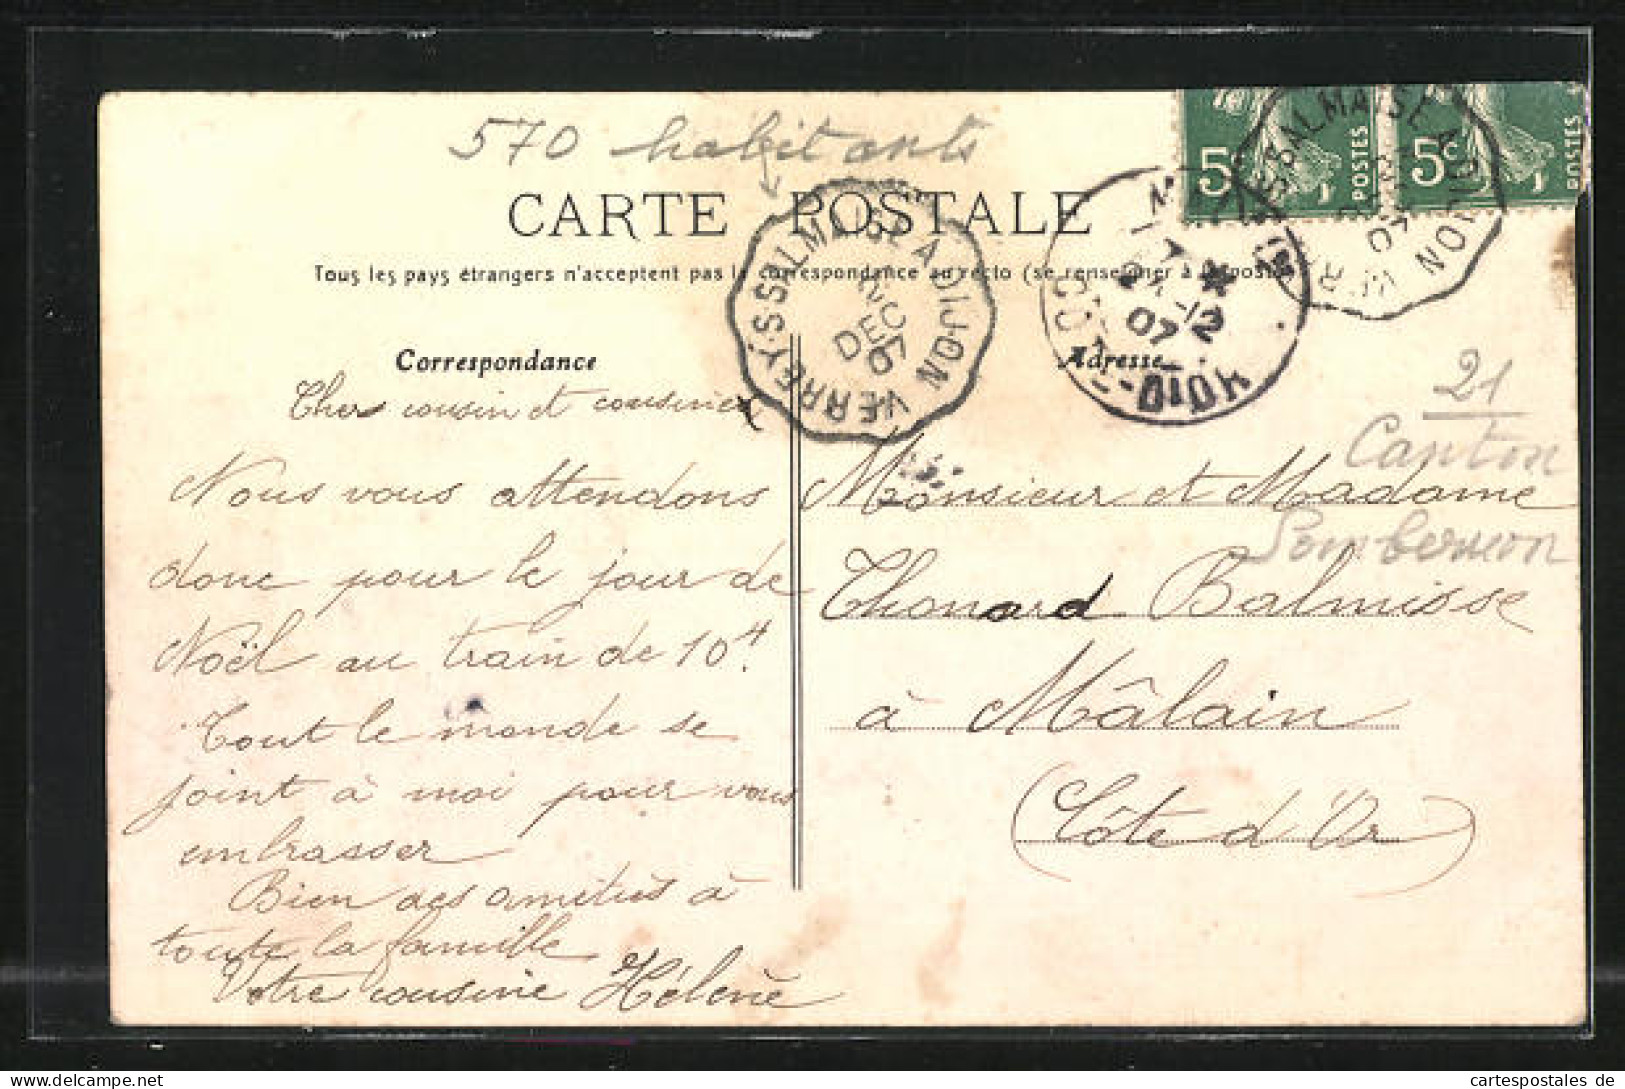 570 habitants
CARTE POSTALE
Tous les pays étrangers n'acceptent pas la correspondance au recto (se renseigner à la poste)
5
POSTES
5c
POSTES
VERREY-S-SALMAISE A DIJON
DEC
07
SALMAISE A DIJON
07
24-12
07
CÔTE-D'OR
Correspondance
Chers cousin et cousine
Nous vous attendons
donc pour le jour de
Noël au train de 10H.
Tout le monde se
joint à moi pour vous
embrasser
Bien des amitiés à
toute la famille
Votre cousine Hélène
Adresse
21
Canton
Sombernon
Monsieur et Madame
Thonard Balmisse
à Mâlain
(Côte d'Or)
cartespostales de